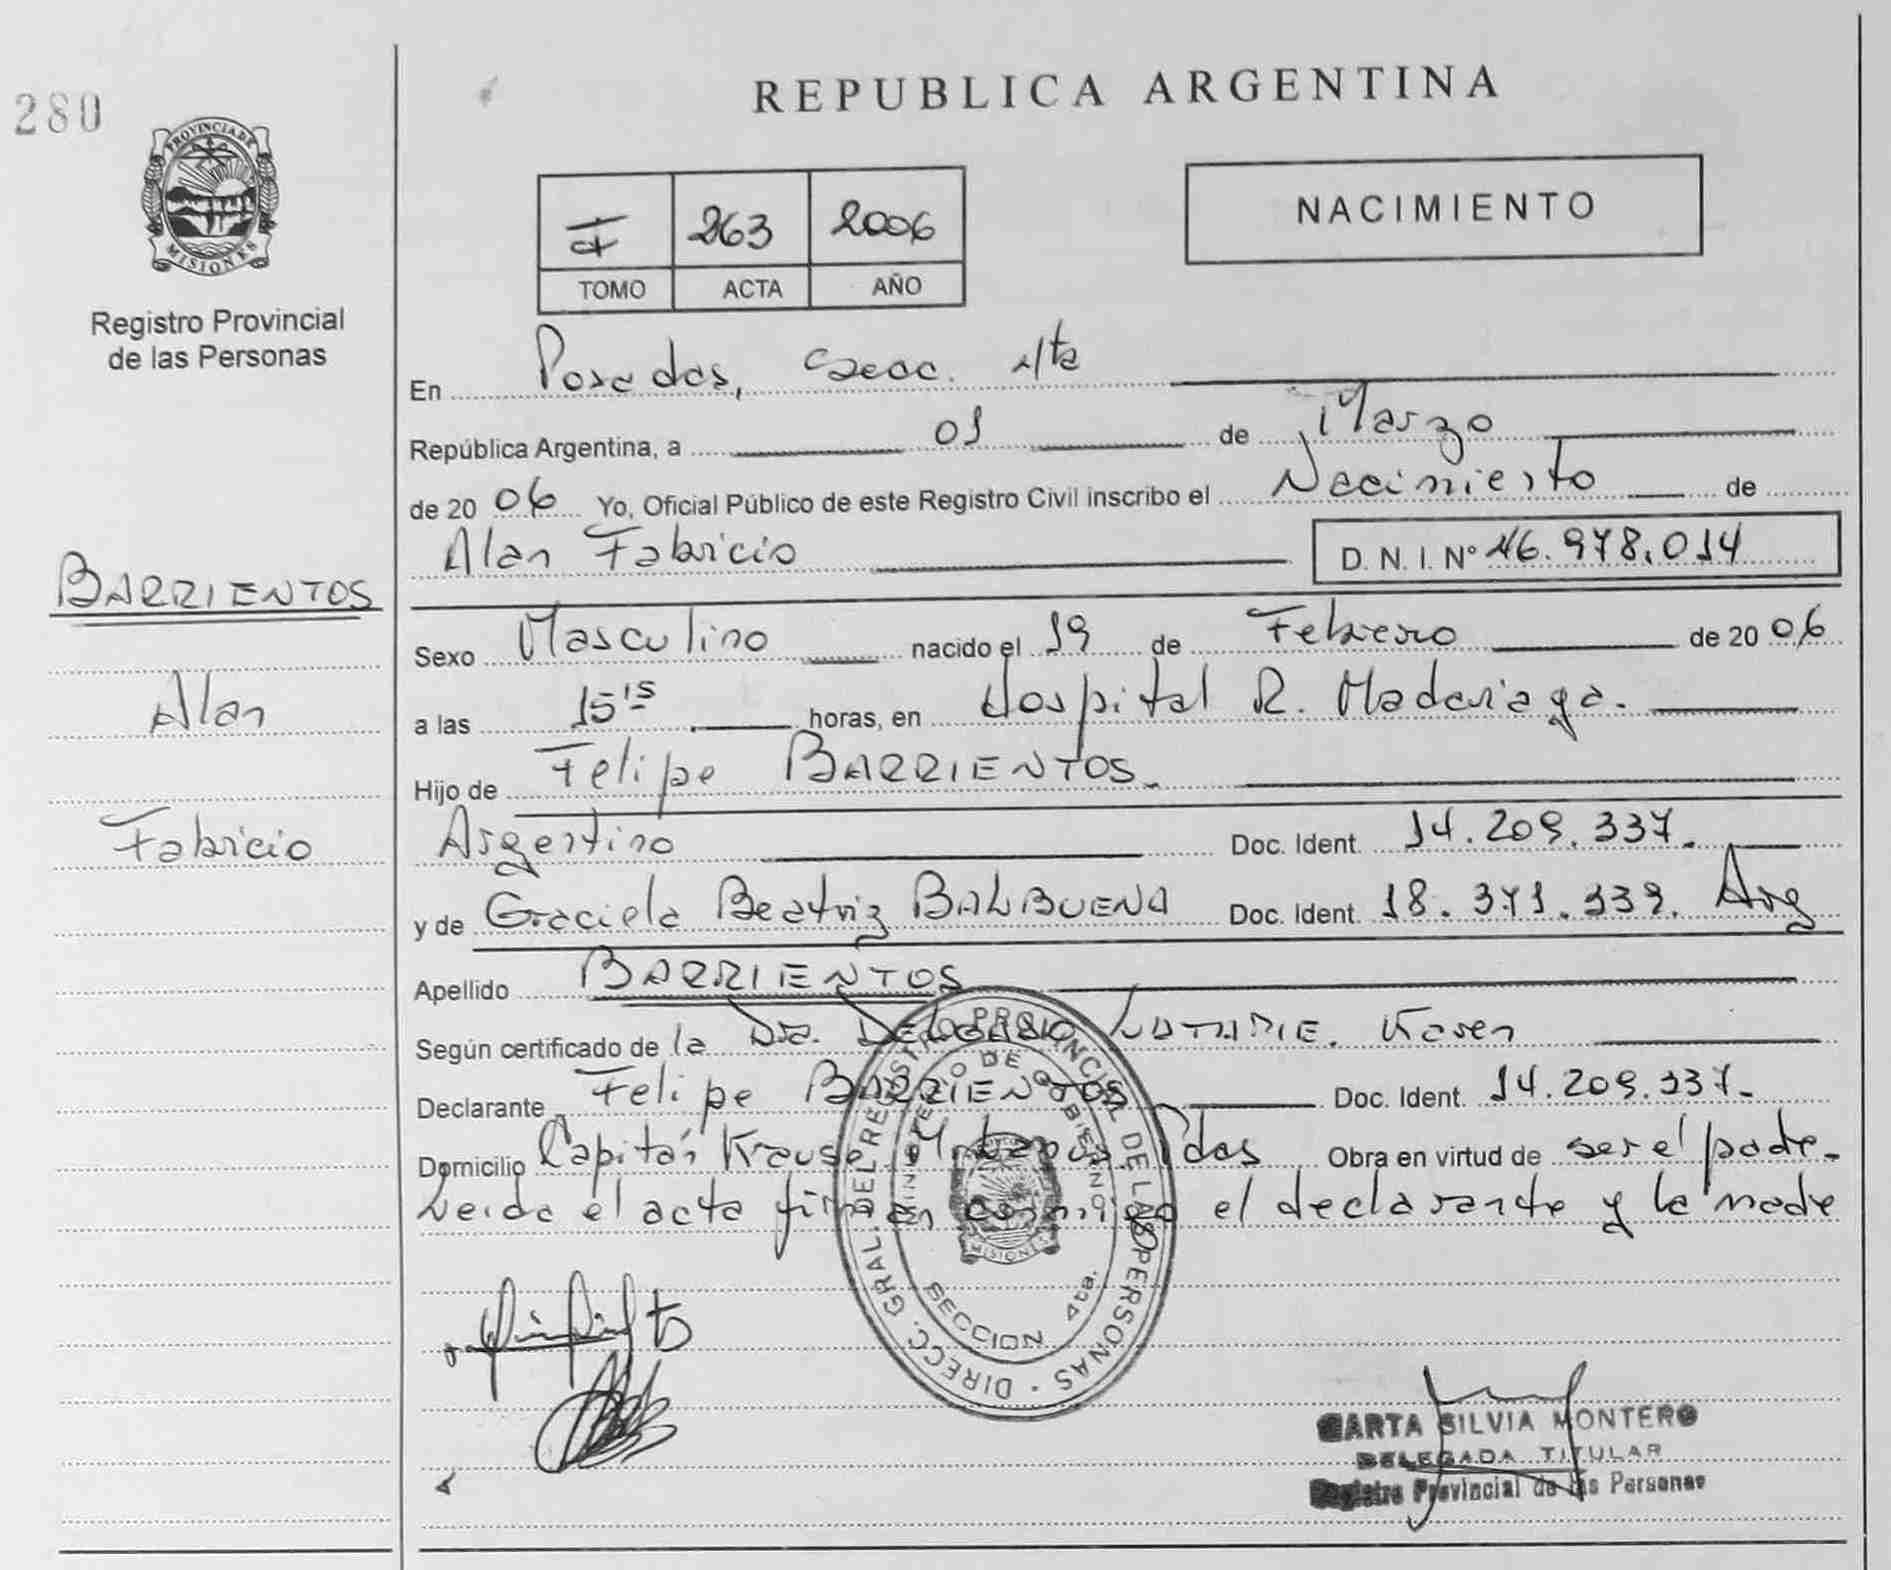 280
REPUBLICA ARGENTINA
PROVINCIA DE
MISIONES
Registro Provincial
de las Personas
I 263 2006
TOMO ACTA AÑO
NACIMIENTO
En Posadas, Secc. 4ta
República Argentina, a 01 de Marzo
de 20 06 Yo, Oficial Público de este Registro Civil inscribo el Nacimiento de
Alan Fabricio D. N. I. Nº 46.978.014
BARRIENTOS
Alan
Fabricio
Sexo Masculino nacido el 19 de Febrero de 20 06
a las 15 15 horas, en Hospital R. Madariaga.
Hijo de Felipe BARRIENTOS.
Argentino Doc. Ident. 14.209.337.
y de Graciela Beatriz BALBUENA Doc. Ident. 18.371.339. Arg
Apellido BARRIENTOS
Según certificado de la Dra. Karen
Declarante Felipe BARRIENTOS Doc. Ident. 14.209.337.
Domicilio Capitán Krause Obra en virtud de ser el padre.
Leida el acta firman conmigo el declarante y la madre
DIRECC. GRAL. DEL REGISTRO PROVINCIAL DE LAS PERSONAS
MINISTERIO DE GOBIERNO
MISIONES
SECCION 4ta.
MARTA SILVIA MONTERO
DELEGADA TITULAR
Registro Provincial de las Personas